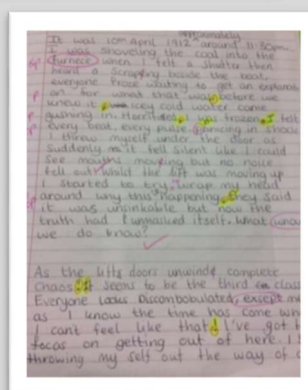 approximately
It was 10th April 1912 around 11:30pm.
I was shoveling the coal into the
Sp. furnece when I felt a shutter then
heard a scraping beside the boat.
everyone froze waiting to get an explanati
p on for what that was before we
knew it, icey cold water come
p gushing in Horrified, I was frozen. I felt
p every beat, every pulse dancing in shock
I threw myself under the door as
suddenly as it fell silent like I could
see mouths moving but no noice
fell out whilst the lift was moving up
I started to try wrap my head
p around why this happening, they said
it was unsinkable but now the
truth had unmasked itself. What
we do know?
As the lifts doors unwinde complete
chaos. It seems to be the third class
Everyone looks Discombobulated, except m
as I know the time has come wh
I cant feel like that! I've got t
focas on getting out of here. I
throwing my self out the way of